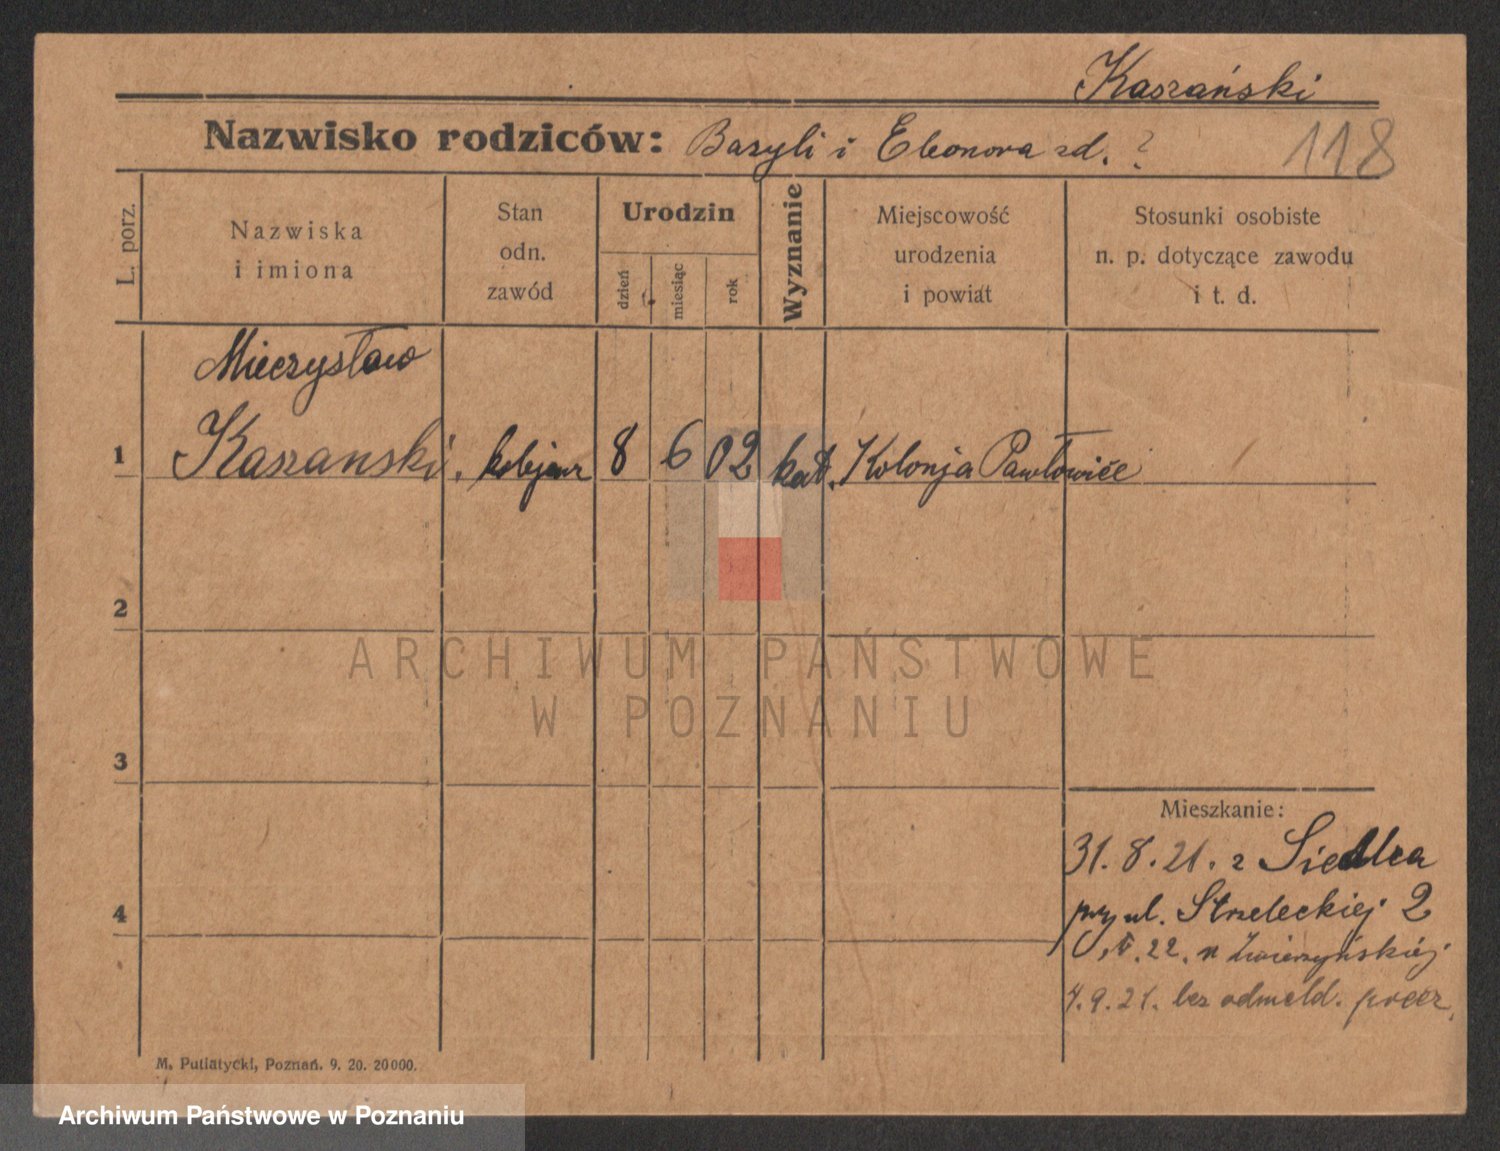 Kaszański
Nazwisko rodziców: Bazyli i Eleonora zd. ?
118
L. porz.
Nazwiska
i imiona
Stan
odn.
zawód
Urodzin
dzień
miesiąc
rok
Wyznanie
Miejscowość
urodzenia
i powiat
Stosunki osobiste
n. p. dotyczące zawodu
i t. d.
Mieczysław
1 Kaszanski kolejarz 8 6 02 kat. Kolonja Pawłowice
2
3
4
Mieszkanie:
31. 8. 21. z Siedlca
przy ul. Strzeleckiej 2
22. Zwierzyńskiej
4. 9. 21. bez odmeld.
M. Putiatycki, Poznań. 9. 20. 20000.
ARCHIWUM PAŃSTWOWE
W POZNANIU
Archiwum Państwowe w Poznaniu